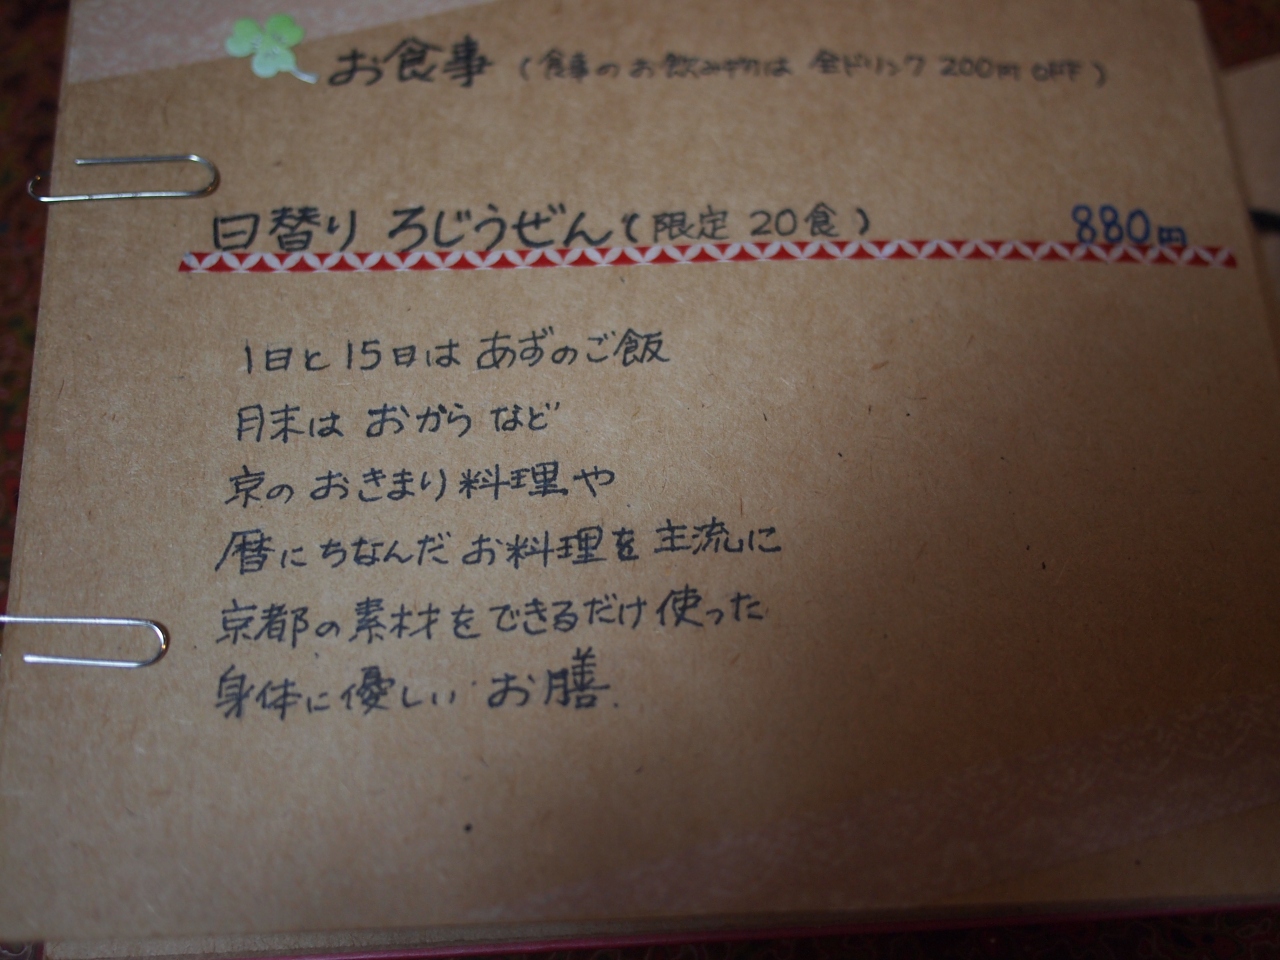 お食事 (食事のお飲み物は 全ドリンク 200円 OFF)
日替り ろじうぜん (限定 20食) 880円
1日と15日は あずのご飯
月末は おから など
京の おきまり料理や
暦にちなんだ お料理を 主流に
京都の素材を できるだけ 使った
身体に優しい お膳.